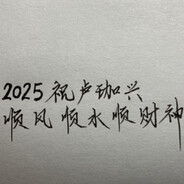 2025 祝卢珈兴
顺风顺水顺财神